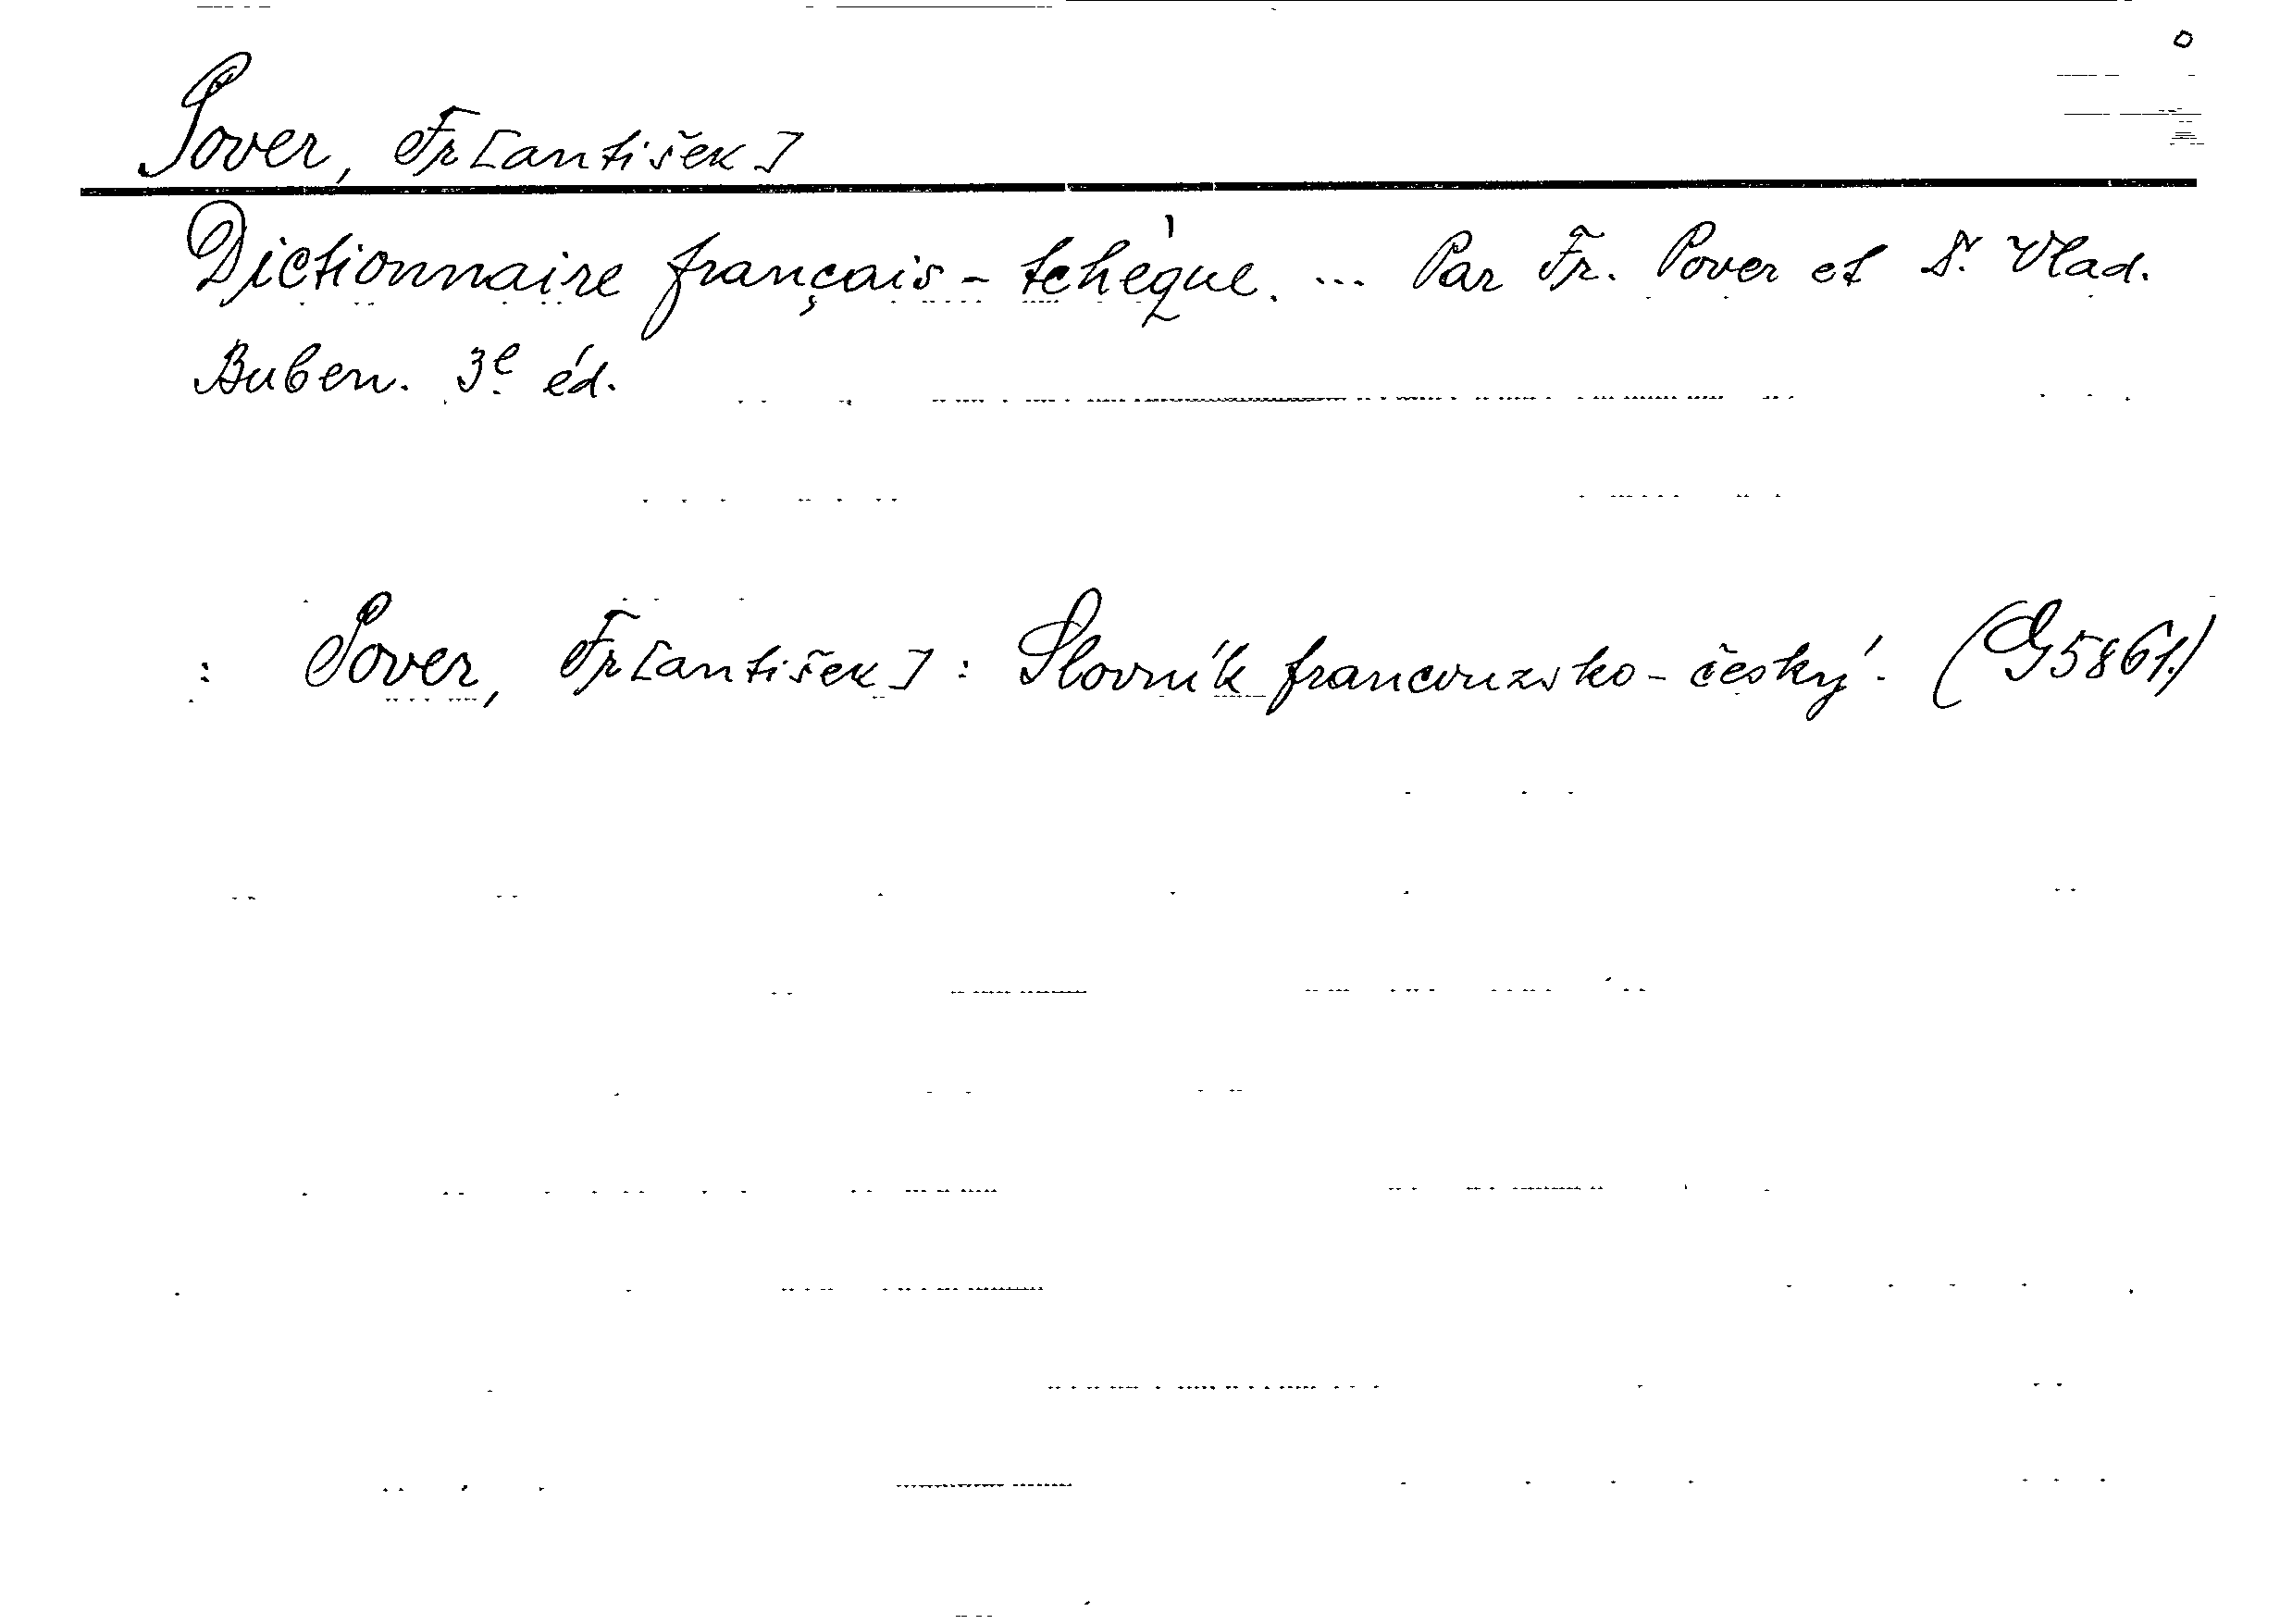 Pover, Fr[antišek]
Dictionnaire français-tchèque. ... Par Fr. Pover et Dr. Vlad.
Buben. 3e éd.
: Pover, Fr[antišek]: Slovník francouzsko-český. (G5861.)